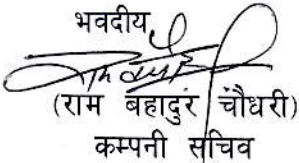 भवदीय
(राम बहादुर चौधरी)
कम्पनी सचिव